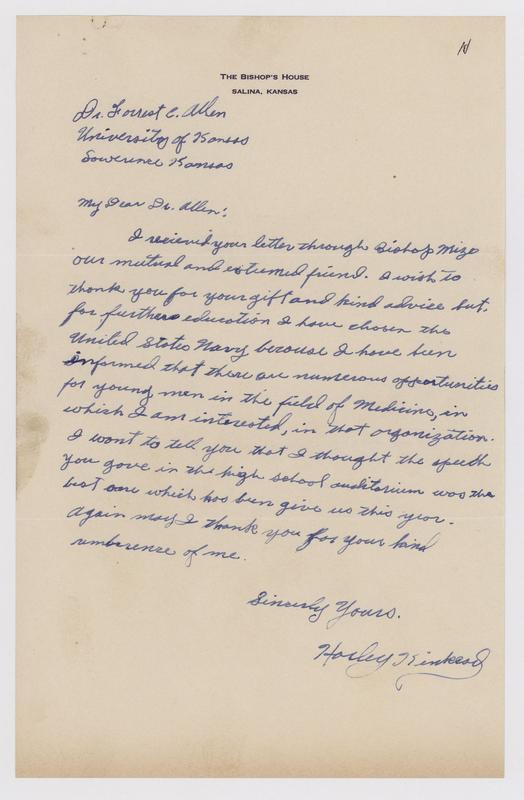 N
THE BISHOP'S HOUSE
SALINA, KANSAS
Dr. Forrest C. Allen
University of Kansas
Lawrence Kansas
My Dear Dr. Allen:
I recieved your letter through Bishop Mize
our mutual and esteemed friend. I wish to
thank you for your gift and kind advice but,
for further education I have chosen the
United States Navy because I have been
informed that there are numerous opportunities
for young men in the field of Medicine, in
which I am interested, in that organization.
I want to tell you that I thought the speech
you gave in the high school auditorium was the
best one which has been give us this year.
Again may I thank you for your kind
rembrence of me.
Sincerly Yours.
Harley Kinkead